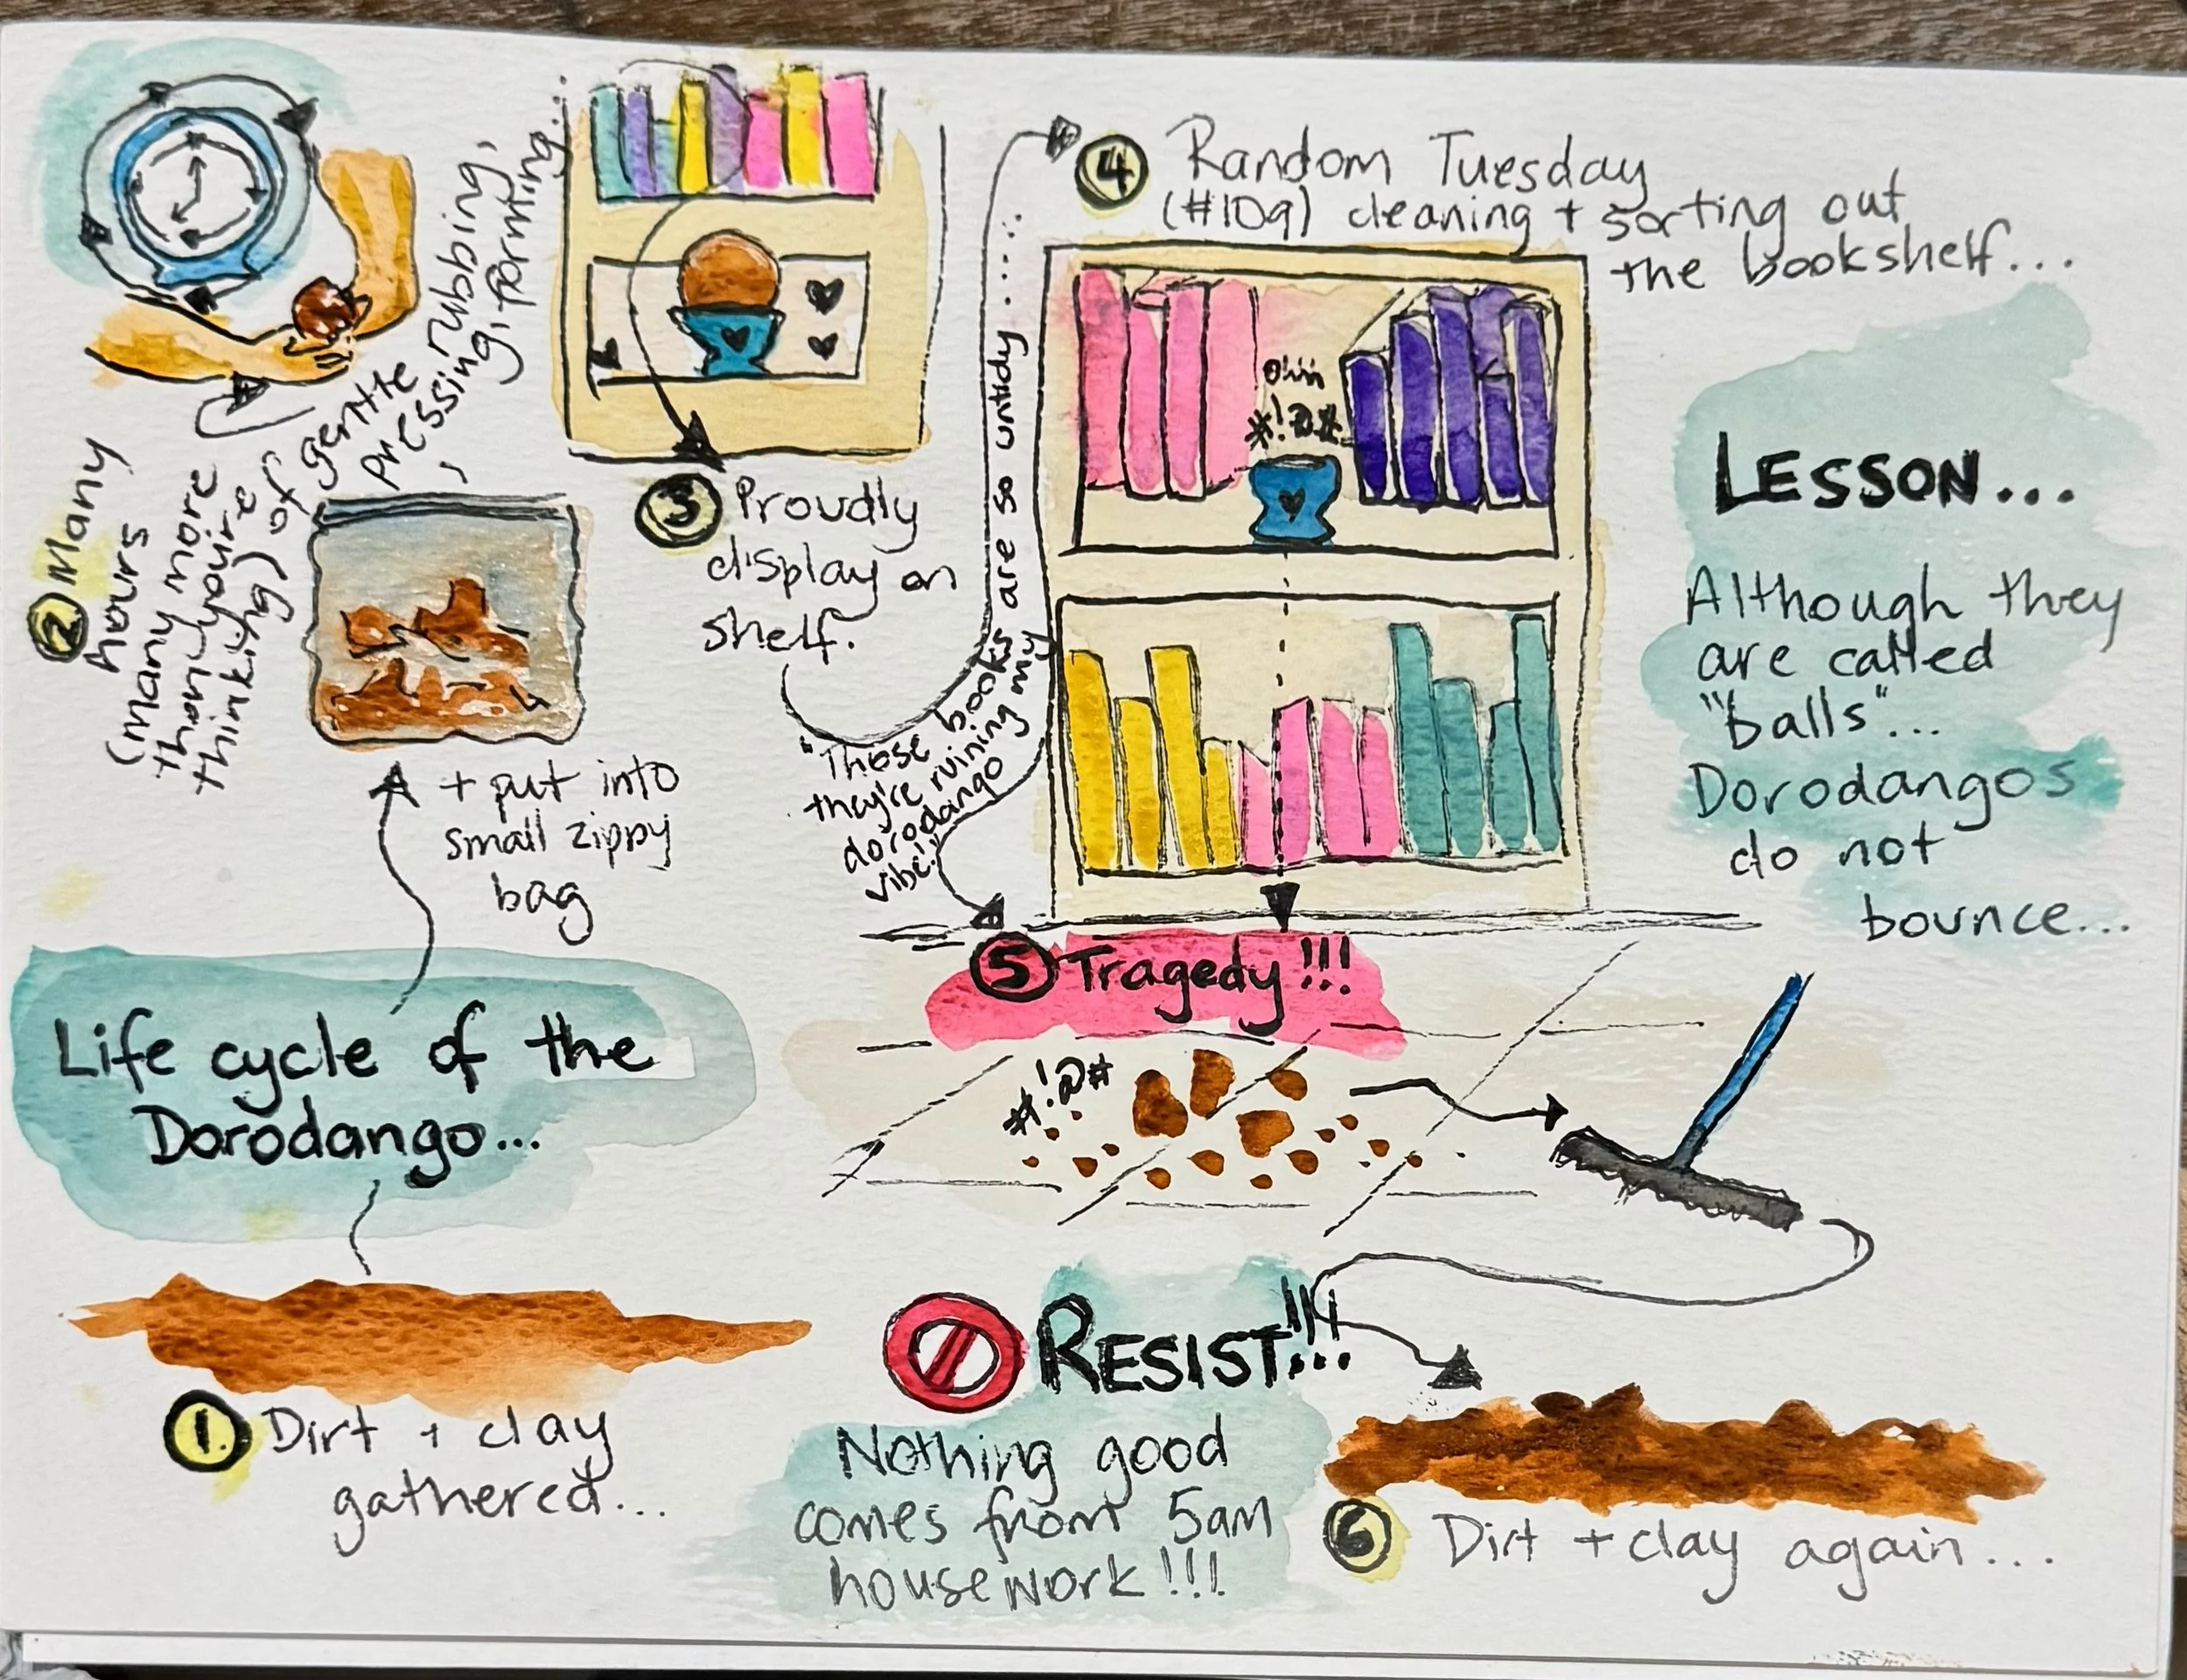 Life cycle of the
Dorodango...
1. Dirt + clay
gathered...
+ put into
small zippy
bag
2 Many
hours
(many more
than you're
thinking) of
gentle
pressing, rubbing,
forming...
3 Proudly
display on
shelf.
"These books are so untidy....
they're ruining my
dorodango
vibe."
4 Random Tuesday
(#109) cleaning + sorting out
the bookshelf...
Ohh
*!@#
5 Tragedy!!!
#!@#
6 Dirt + clay again...
LESSON...
Although they
are called
"balls"...
Dorodangos
do not
bounce...
RESIST!!!
Nothing good
comes from 5am
housework!!!